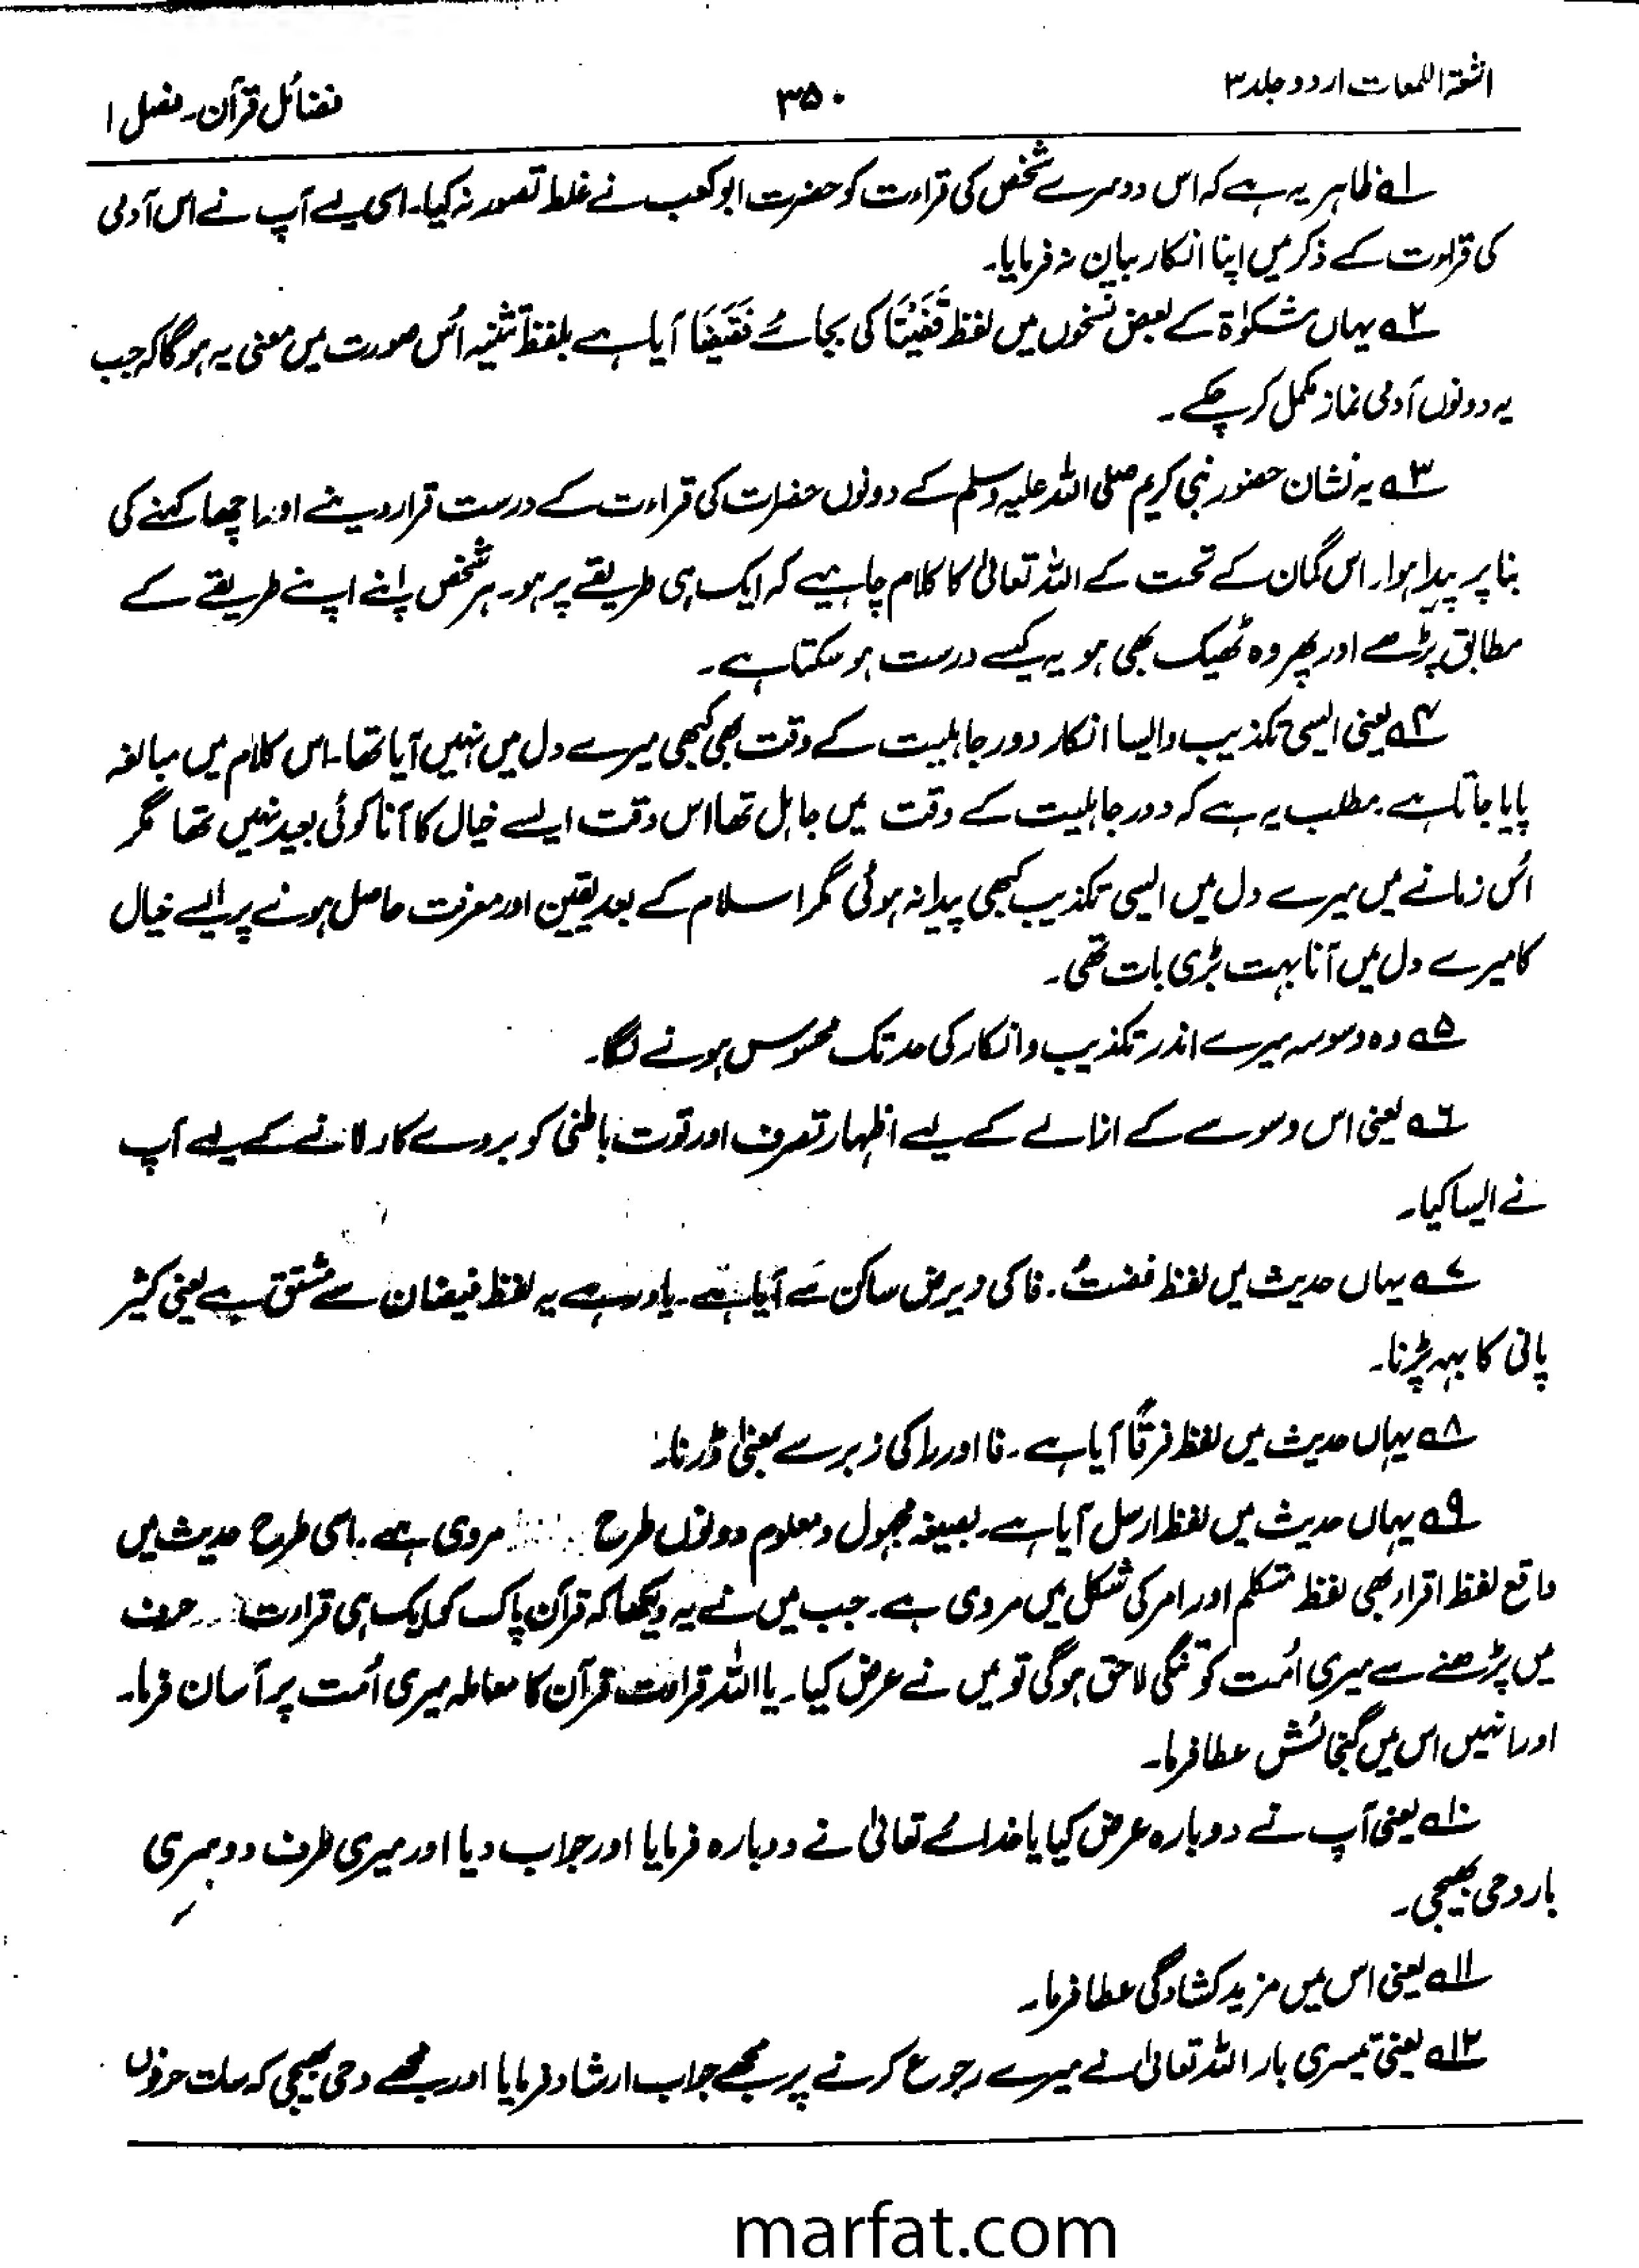 اشعۃ اللمعات اردو جلد ۳
۳۵۰
فضائل قرآن۔ فصل ۱
۱؎ ظاہر یہ ہے کہ اس دوسرے شخص کی قراءت کو حضرت ابو کعب نے غلط تصور نہ کیا۔ اسی لیے آپ نے اس آدمی
کی قراءت کے ذکر میں اپنا انکار بیان نہ فرمایا۔
۲؎ یہاں مشکوٰۃ کے بعض نسخوں میں لفظ قَضَیْنَا کی بجائے فَقَضَیَا آیا ہے بلفظ تثنیہ اُس صورت میں معنی یہ ہوگا کہ جب
یہ دونوں آدمی نماز مکمل کر چکے۔
۳؎ یہ نشان حضور نبی کریم صلی اللہ علیہ وسلم کے دونوں حضرات کی قراءت کے درست قرار دینے اور اچھا کہنے کی
بنا پر پیدا ہوا۔ اس گمان کے تحت کے اللہ تعالیٰ کا کلام چاہیے کہ ایک ہی طریقے پر ہو۔ ہر شخص اپنے اپنے طریقے کے
مطابق پڑھے اور پھر وہ ٹھیک بھی ہو یہ کیسے درست ہو سکتا ہے۔
۴؎ یعنی ایسی تکذیب و ایسا انکار دور جاہلیت کے وقت بھی کبھی میرے دل میں نہیں آیا تھا۔ اس کلام میں مبالغہ
پایا جاتا ہے۔ مطلب یہ ہے کہ دور جاہلیت کے وقت میں جاہل تھا اس وقت ایسے خیال کا آنا کوئی بعید نہیں تھا مگر
اُس زمانے میں میرے دل میں ایسی تکذیب کبھی پیدا نہ ہوئی مگر اسلام کے بعد یقین اور معرفت حاصل ہونے پر ایسے خیال
کا میرے دل میں آنا بہت بڑی بات تھی۔
۵؎ وہ وسوسہ میرے اندر تکذیب و انکار کی حد تک محسوس ہونے لگا۔
۶؎ یعنی اس وسوسے کے ازالے کے لیے اظہار تصرف اور قوت باطنی کو بروے کار لانے کے لیے آپ
نے ایسا کیا۔
۷؎ یہاں حدیث میں لفظ فِضْتُ۔ فا کی زیر ض ساکن سے آیا ہے۔ یاد رہے یہ لفظ فیضان سے مشتق ہے یعنی کثیر
پانی کا بہہ پڑنا۔
۸؎ یہاں حدیث میں لفظ فرقًا آیا ہے۔ فا اور را کی زبر سے بمعنیٰ ڈرنا۔
۹؎ یہاں حدیث میں لفظ ارسل آیا ہے۔ بصیغہ مجہول و معلوم دونوں طرح مروی ہے۔ اسی طرح حدیث میں
واقع لفظ اقراء بھی لفظ متکلم اور امر کی شکل میں مروی ہے۔ جب میں نے یہ دیکھا کہ قرآن پاک کو ایک ہی قرارت حرف
میں پڑھنے سے میری اُمت کو تنگی لاحق ہوگی تو میں نے عرض کیا۔ یا اللہ قراءت قرآن کا معاملہ میری اُمت پر آسان فرما۔
اور انہیں اس میں گنجائش عطا فرما۔
۱۰؎ یعنی آپ نے دوبارہ عرض کیا یا خدائے تعالیٰ نے دوبارہ فرمایا اور جواب دیا اور میری طرف دوسری
بار وحی بھیجی۔
۱۱؎ یعنی اس میں مزید کشادگی عطا فرما۔
۱۲؎ یعنی تیسری بار اللہ تعالیٰ نے میرے رجوع کرنے پر مجھے جواب ارشاد فرمایا اور مجھے وحی بھیجی کہ سات حرفوں
marfat.com